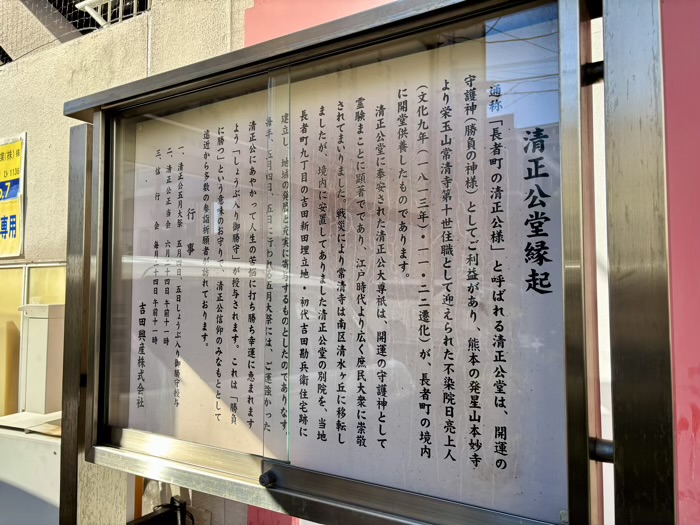 清正公堂縁起
通称「長者町の清正公様」と呼ばれる清正公堂は、開運の
守護神(勝負の神様)としてご利益があり、熊本の発星山本妙寺
より栄玉山常清寺第十世住職として迎えられた不染院日亮上人
(文化九年(一八一三年)・一一・二二遷化)が、長者町の境内
に開堂供養したものであります。
清正公堂に奉安された清正公大尊祇は、開運の守護神として
霊験まことに顕著でであり、江戸時代より広く庶民大衆に崇敬
されてまいりました。戦災により常清寺は南区清水ヶ丘に移転し
ましたが、境内に安置してありました清正公堂の別院を、当地
長者町九丁目の吉田新田埋立地・初代吉田勘兵衛住宅跡に
建立し、地域の発展と充実に寄与するものとしたのでありなす
毎年、五月四日、五日に行われる五月大祭には、ご運強かった
清正公にあやかって人生の苦悩に打ち勝ち幸運に恵まれます
よう「しょうぶ入り御勝守」が授与されます。これは「勝負
に勝つ」という意味のお守りで、清正公信仰のみなもととして
遠近から多数の参詣祈願者が訪れております。
行事
一、清正公五月大祭 五月四日、五日しょうぶ入り御勝守授与
二、清正公正当会 六月二十四日午前十一時
三、信行会 毎月二十四日午前十一時
吉田興産株式会社
専用